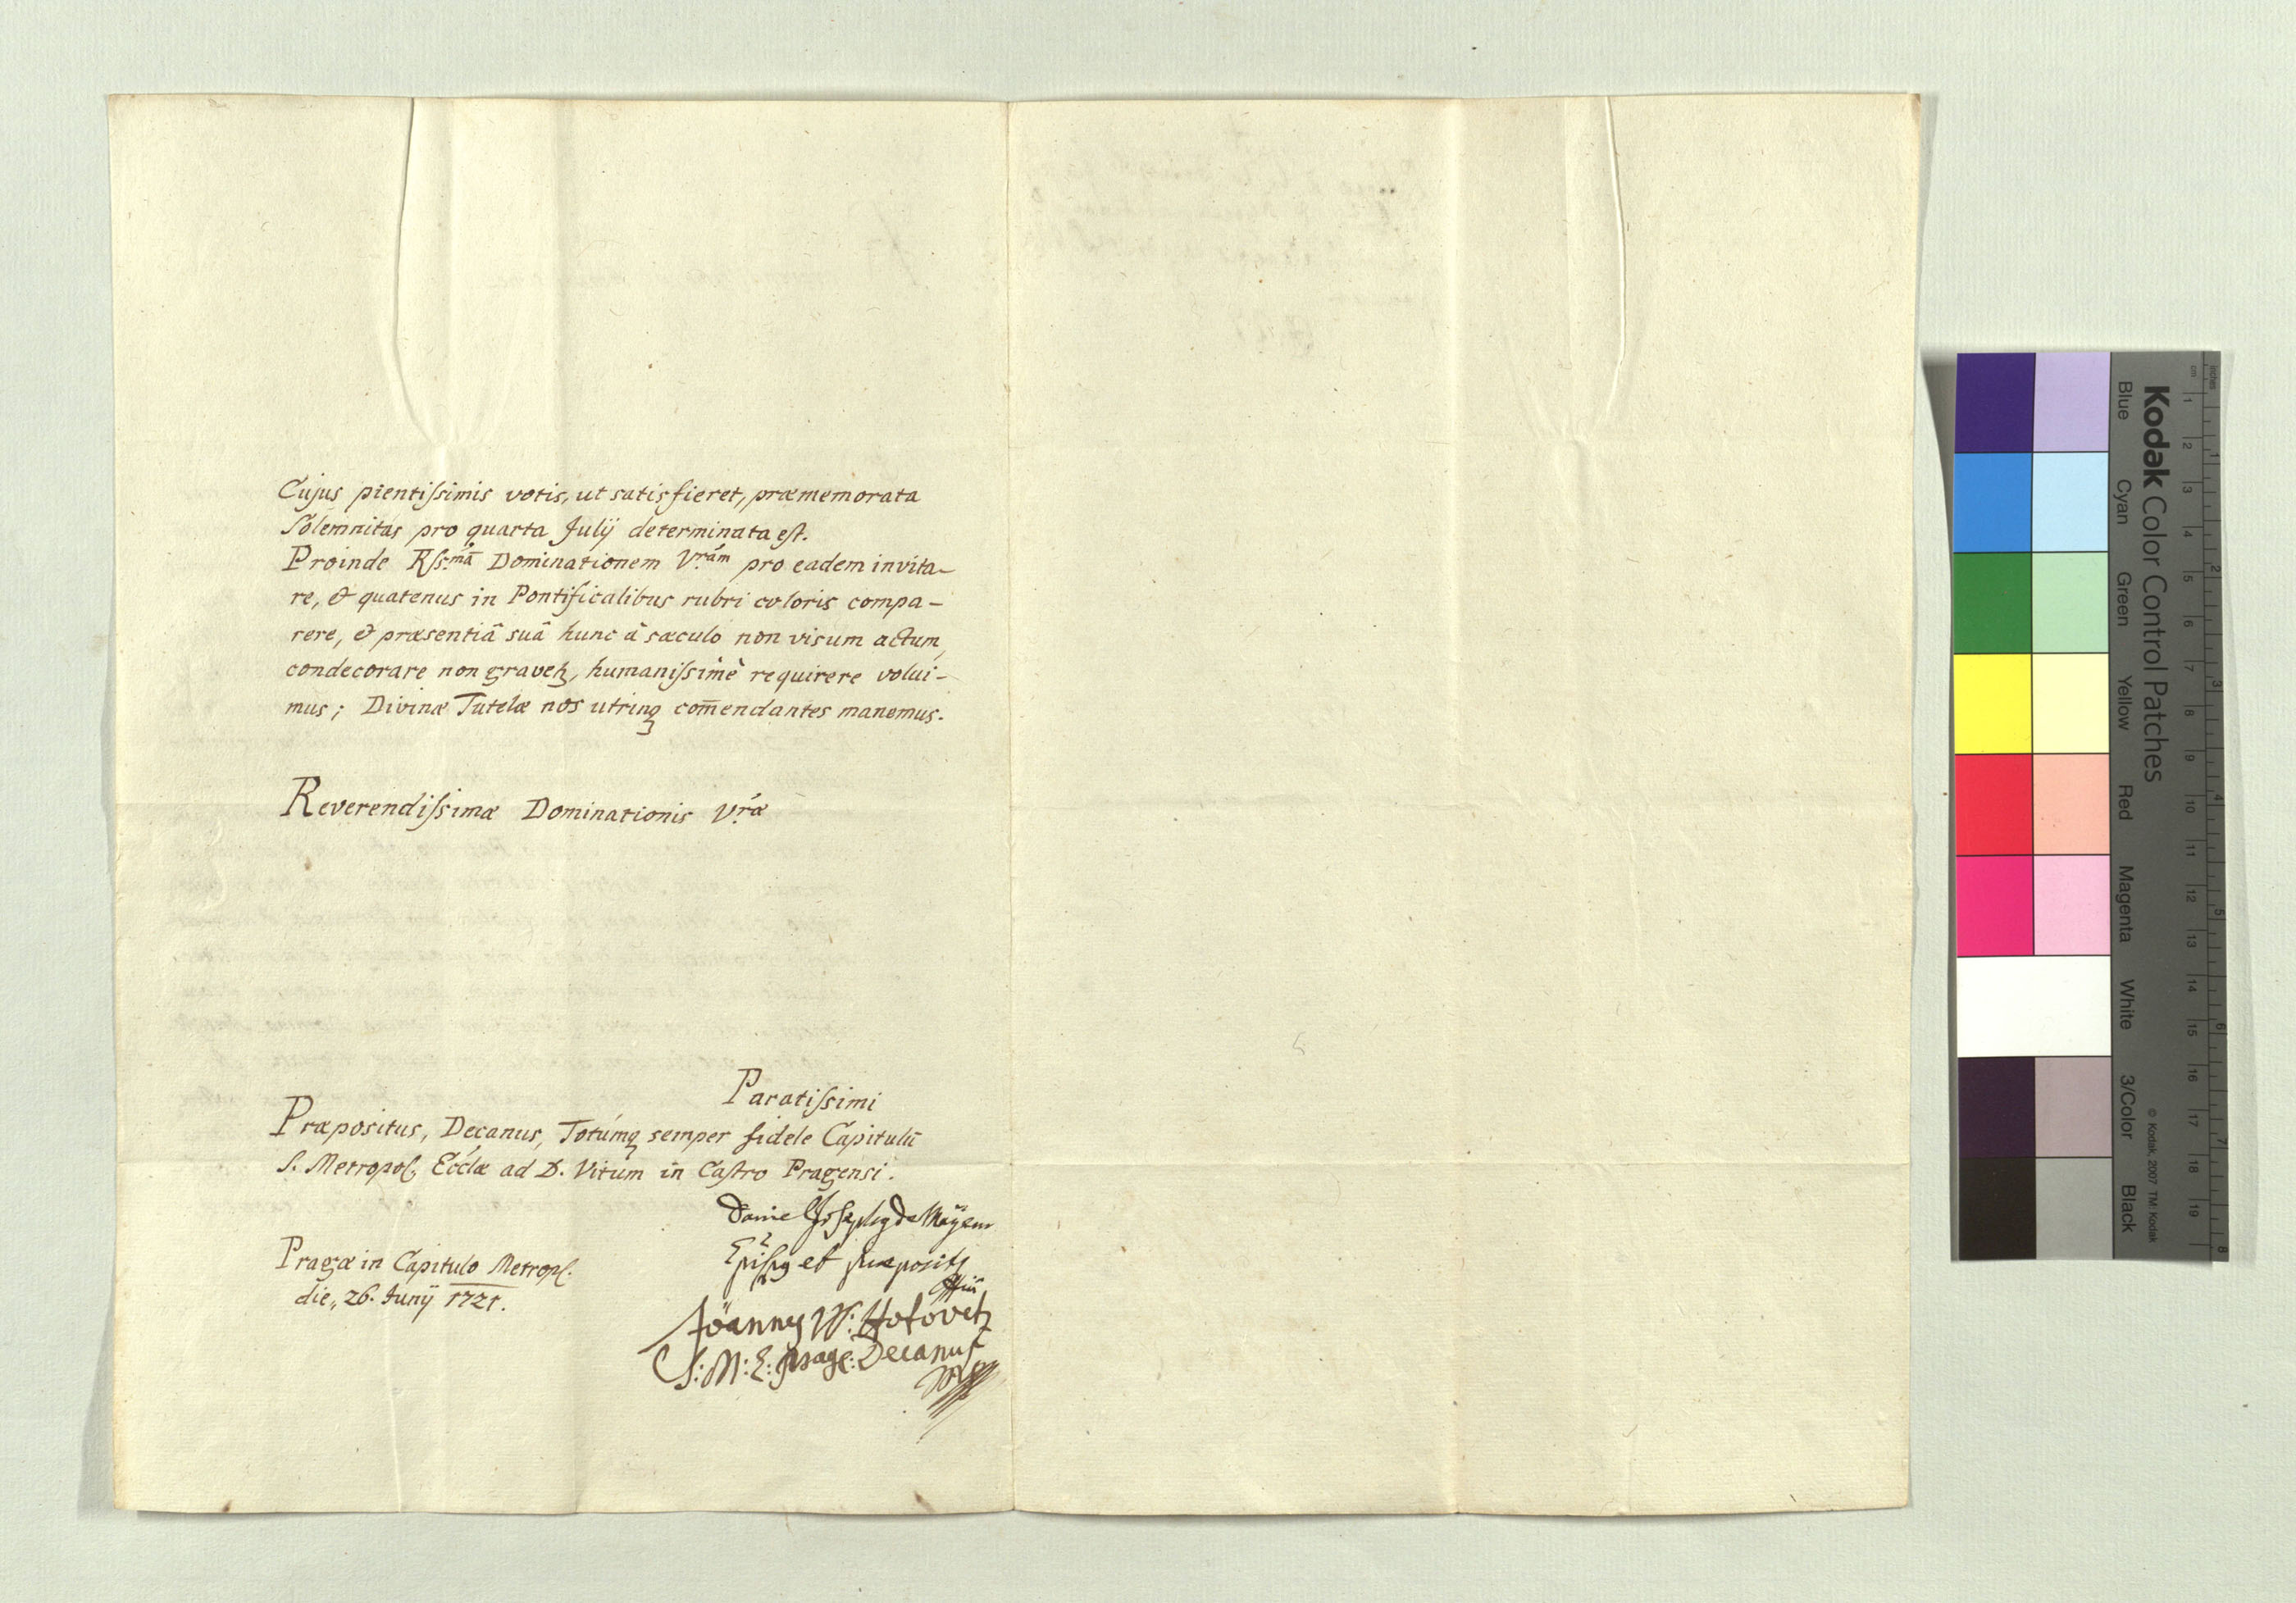 Cujus pientiſsimis votis, ut satisfieret, præmemorata
Solemnitas pro quarta Julij determinata eſt.
Proinde Rſs:mã Dominationem V:rám pro eadem invita-
re, & quatenus in Pontificalibus rubri coloris compa-
rere, & præsentiâ suâ hunc à sæculo non visum actum,
condecorare non gravetꝫ, humaniſsimè requirere volui-
mus; Divinæ Tutelæ nos utrinqꝫ com̃endantes manemus.
Reverendiſsimæ Dominationis V:ræ
Paratiſsimi
Præpositus, Decanus, Totúmqꝫ semper fidele Capitulũ
S. Metropol. Eccĺæ ad D. Vitum in Caſtro Pragensi.
Daniel Josephg de Mayern
Epiſpg et præposits
Pragæ in Capitulo Metropl.
die,, 26. Junij 1721.
Jöannes W: Hofovetz
S: M: E: Prage: Decanus
Kodak Color Control Patches
Blue Cyan Green Yellow Red Magenta White 3/Color Black
© Kodak, 2007 TM: Kodak
inches 1 2 3 4 5 6 7 8
cm 1 2 3 4 5 6 7 8 9 10 11 12 13 14 15 16 17 18 19